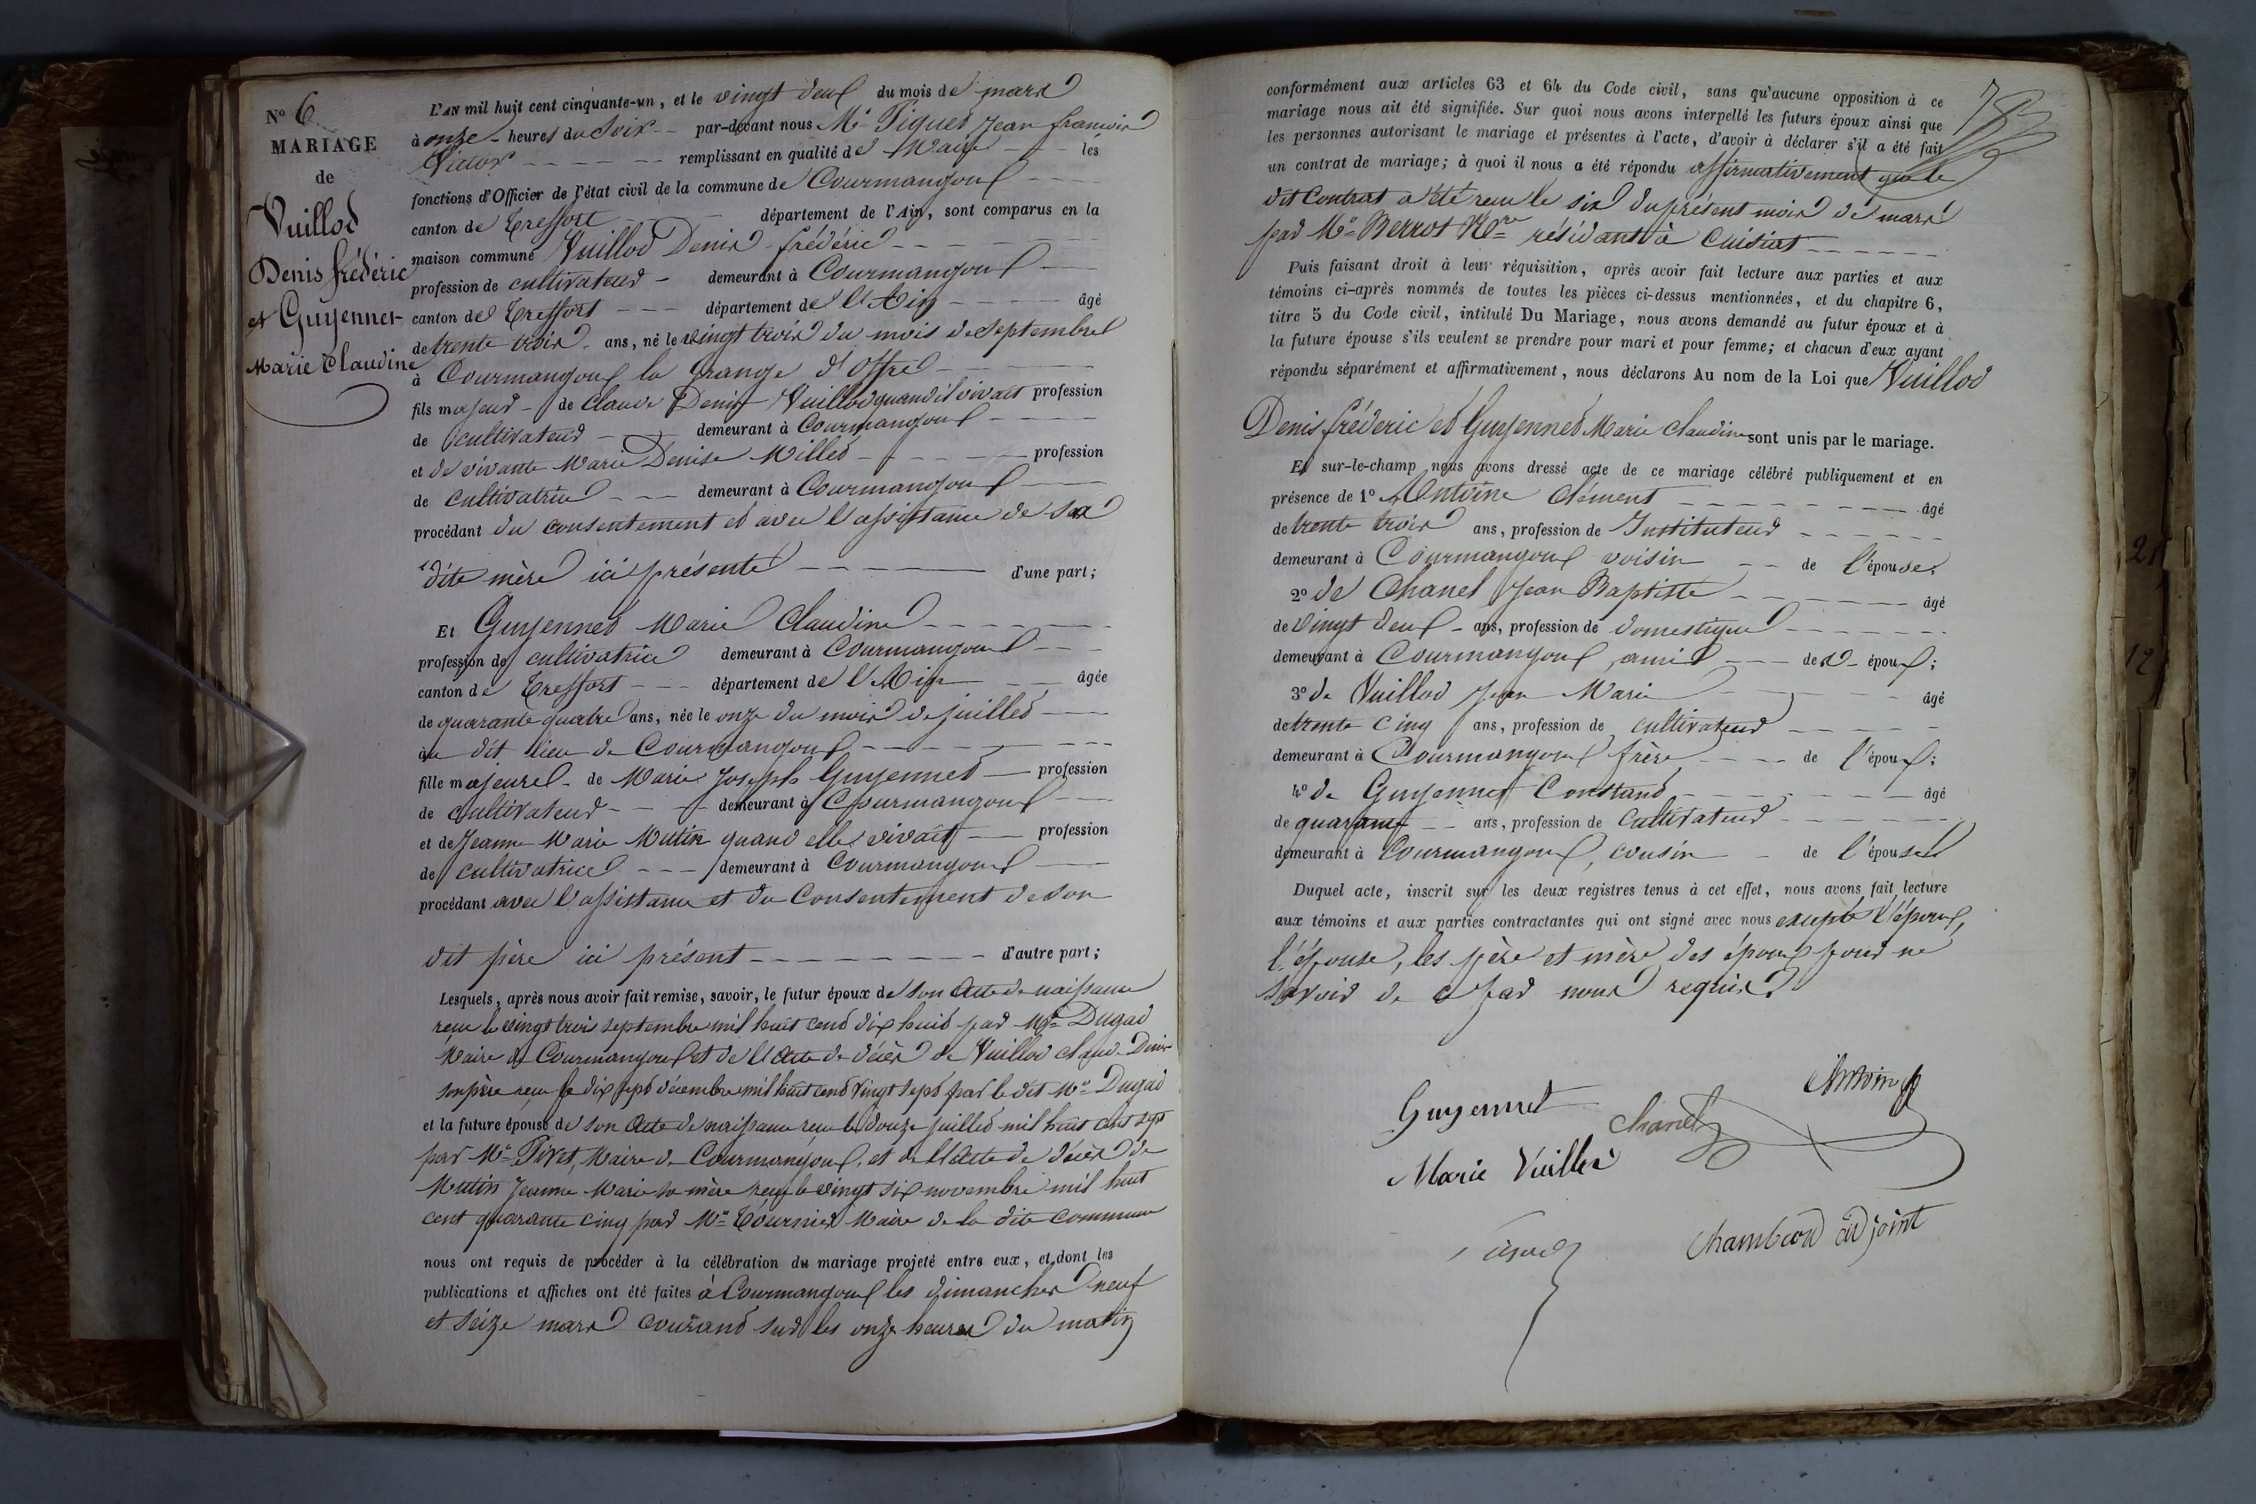 N° 6
MARIAGE
de
Vuillod
Denis frédéric
et Guyennet
Marie Claudine
L'AN mil huit cent cinquante-un, et le vingt deux du mois de mars
à onze heures du Soir par-devant nous Mr Piquet Jean françois
Victor remplissant en qualité de Maire les
fonctions d'Officier de l'état civil de la commune de Courmangoux
canton de Treffort département de l'Ain, sont comparus en la
maison commune Vuillod Denis frédéric
profession de cultivateur demeurant à Courmangoux
canton de Treffort département de l'Ain âgé
de trente trois ans, né le vingt trois du mois de Septembre
à Courmangoux la Grange d'Offre
fils majeur de Claude Denis Vuillod quand il vivait profession
de cultivateur demeurant à Courmangoux
et de vivante Marie Denise Millet profession
de cultivatrice demeurant à Courmangoux
procédant du consentement et avec l'assistance de sa
dite mère ici présente d'une part;
Et Guyennet Marie Claudine
profession de cultivatrice demeurant à Courmangoux
canton de Treffort département de l'Ain âgée
de quarante quatre ans, née le onze du mois de juillet
au dit lieu de Courmangoux
fille majeure de Marie Joseph Guyennet profession
de cultivateur demeurant à Courmangoux
et de Jeanne Marie Mutin quand elle vivait profession
de cultivatrice demeurant à Courmangoux
procédant avec l'assistance et du Consentement de son
dit père ici présent d'autre part;
Lesquels, après nous avoir fait remise, savoir, le futur époux de son Acte de naissance
reçu le vingt trois septembre mil huit cent dix huit par Mr Dugad
Maire de Courmangoux et de l'Acte de décès de Vuillod claude Denis
son père reçu le dix sept décembre mil huit cent vingt sept par le dit Mr Dugad
et la future épouse de son Acte de naissance reçu le douze juillet mil huit cent sept
par Mr Pivet, Maire de Courmangoux, et de l'Acte de décès de
Mutin Jeanne Marie sa mère reçu le vingt six novembre mil huit
cent quarante cinq par Mr Tournier Maire de la dite commune
nous ont requis de procéder à la célébration du mariage projeté entre eux, et dont les
publications et affiches ont été faites à Courmangoux les dimanches neuf
et seize mars courant sur les onze heures du matin
conformément aux articles 63 et 64 du Code civil, sans qu'aucune opposition à ce
mariage nous ait été signifiée. Sur quoi nous avons interpellé les futurs époux ainsi que
les personnes autorisant le mariage et présentes à l'acte, d'avoir à déclarer s'il a été fait
un contrat de mariage; à quoi il nous a été répondu affirmativement que le
dit Contrat a été reçu le six du présent mois de mars
par Mr Perrot Nre résidant à Cuisiat
Puis faisant droit à leur réquisition, après avoir fait lecture aux parties et aux
témoins ci-après nommés de toutes les pièces ci-dessus mentionnées, et du chapitre 6,
titre 5 du Code civil, intitulé Du Mariage, nous avons demandé au futur époux et à
la future épouse s'ils veulent se prendre pour mari et pour femme; et chacun d'eux ayant
répondu séparément et affirmativement, nous déclarons Au nom de la Loi que Vuillod
Denis fréderic et Guyennet Marie claudine sont unis par le mariage.
Et sur-le-champ nous avons dressé acte de ce mariage célébré publiquement et en
présence de 1° Antoine Clément âgé
de trente trois ans, profession de Instituteur
demeurant à Courmangoux voisin de l'épouse;
2° de Chanel Jean Baptiste âgé
de vingt deux ans, profession de domestique
demeurant à Courmangoux, ami de l'époux;
3° de Vuillod Jean Marie âgé
de trente cinq ans, profession de cultivateur
demeurant à Courmangoux frère de l'époux;
4° de Guyennet Constand âgé
de quarante ans, profession de Cultivateur
demeurant à Courmangoux, cousin de l'épouse
Duquel acte, inscrit sur les deux registres tenus à cet effet, nous avons fait lecture
aux témoins et aux parties contractantes qui ont signé avec nous excepté l'époux,
l'épouse, les père et mère des époux pour ne
savoir de ce par nous requis.
Antoine
Guyennet
Chanel
Marie Vuillod
Chambard adjoint